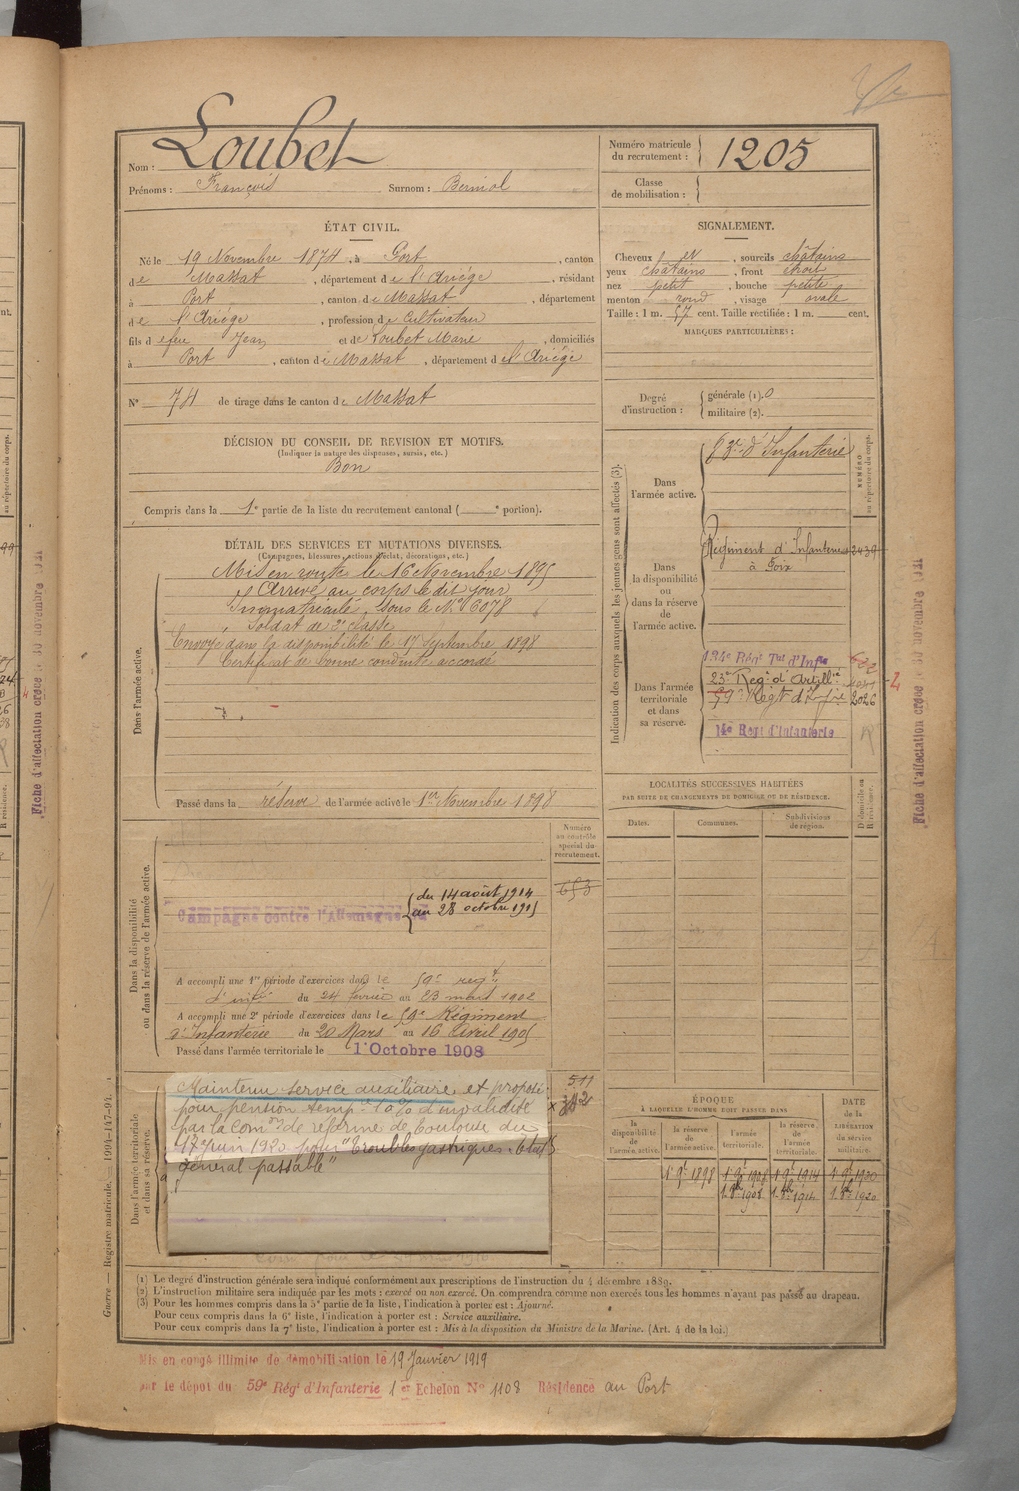 Nom : Loubet
Prénoms : François Surnom : Berniol
Numéro matricule
du recrutement : 1205
Classe
de mobilisation :
ÉTAT CIVIL.
Né le 19 Novembre 1874, à Port, canton
de Massat, département de l'Ariège, résidant
à Port, canton de Massat, département
de l'Ariège, profession de Cultivateur
fils d efeu Jean et de Loubet Marie, domiciliés
à Port, canton de Massat, département de l'Ariège
N° 74 de tirage dans le canton de Massat
DÉCISION DU CONSEIL DE REVISION ET MOTIFS.
(Indiquer la nature des dispenses, sursis, etc.)
Bon
Compris dans la 1e partie de la liste du recrutement cantonal ( e portion).
DÉTAIL DES SERVICES ET MUTATIONS DIVERSES.
(Campagnes, blessures, actions d'éclat, décorations, etc.)
Dans l'armée active.
Mis en route le 16 Novembre 1895
Arrivé au corps le dit jour
Immatriculé sous le N° 6078
Soldat de 2e classe
Envoyé dans la disponibilité le 17 Septembre 1898
Certificat de bonne conduite accordé
Passé dans la réserve de l'armée active le 1er Novembre 1898
Dans la disponibilité
ou dans la réserve de l'armée active.
Numéro
au contrôle
spécial du
recrutement.
653
Campagne contre l'Allemagne
du 14 août 1914
au 28 octobre 1915
A accompli une 1re période d'exercices dans le 59e régt
d'infie du 24 février au 23 mars 1902
A accompli une 2e période d'exercices dans le 59e Régiment
d'Infanterie du 20 Mars au 16 Avril 1905
Passé dans l'armée territoriale le 1 Octobre 1908
Dans l'armée territoriale
et dans sa réserve.
511
Maintenu service auxiliaire et proposé
pour pension tempre 10% d'invalidité
par la Comon de réforme de Toulouse du
17 juin 1920 pour "Troubles gastriques. Etat
général passable"
SIGNALEMENT.
Cheveux, sourcils châtains
yeux châtains, front étroit
nez petit, bouche petite
menton rond, visage ovale
Taille : 1 m. 57 cent. Taille rectifiée : 1 m. cent.
MARQUES PARTICULIÈRES :
Degré
d'instruction :
générale (1). 0
militaire (2).
Indication des corps auxquels les jeunes gens sont affectés (3).
NUMÉRO
au répertoire du corps.
Dans
l'armée active.
83e d'Infanterie
Dans
la disponibilité
ou dans
la réserve
de
l'armée active.
Régiment d'Infanterie 2439
à Foix
Dans l'armée
territoriale
et dans
sa réserve.
134e Régt Tal d'Infie
23e Regt d'Artillie
59e Régt d'Infie 2026
14e Regt d'Infanterie
LOCALITÉS SUCCESSIVES HABITÉES
PAR SUITE DE CHANGEMENTS DE DOMICILE OU DE RÉSIDENCE.
Dates.
Communes.
Subdivisions
de région.
D. domicile ou
R. résidence.
ÉPOQUE
À LAQUELLE L'HOMME DOIT PASSER DANS
la
disponibilité
de
l'armée active.
la réserve
de
l'armée active.
l'armée
territoriale.
la réserve
de
l'armée
territoriale.
DATE
de la
LIBÉRATION
du service
militaire.
1 9bre 1898 1 9bre 1908 1 9bre 1914 1 9bre 1920
1 8bre 1908 1 8bre 1914 1 8bre 1920
(1) Le degré d'instruction générale sera indiqué conformément aux prescriptions de l'instruction du 4 décembre 1889.
(2) L'instruction militaire sera indiquée par les mots : exercé ou non exercé. On comprendra comme non exercés tous les hommes n'ayant pas passé au drapeau.
(3) Pour les hommes compris dans la 5e partie de la liste, l'indication à porter est : Ajourné.
Pour ceux compris dans la 6e liste, l'indication à porter est : Service auxiliaire.
Pour ceux compris dans la 7e liste, l'indication à porter est : Mis à la disposition du Ministre de la Marine. (Art. 4 de la loi.)
Mis en congé illimité de démobilisation le 19 Janvier 1919
par le dépôt du 59e Régt d'Infanterie 1er Echelon N° 1108 Résidence au Port
Guerre. — Registre matricule. — 1994-147-94.